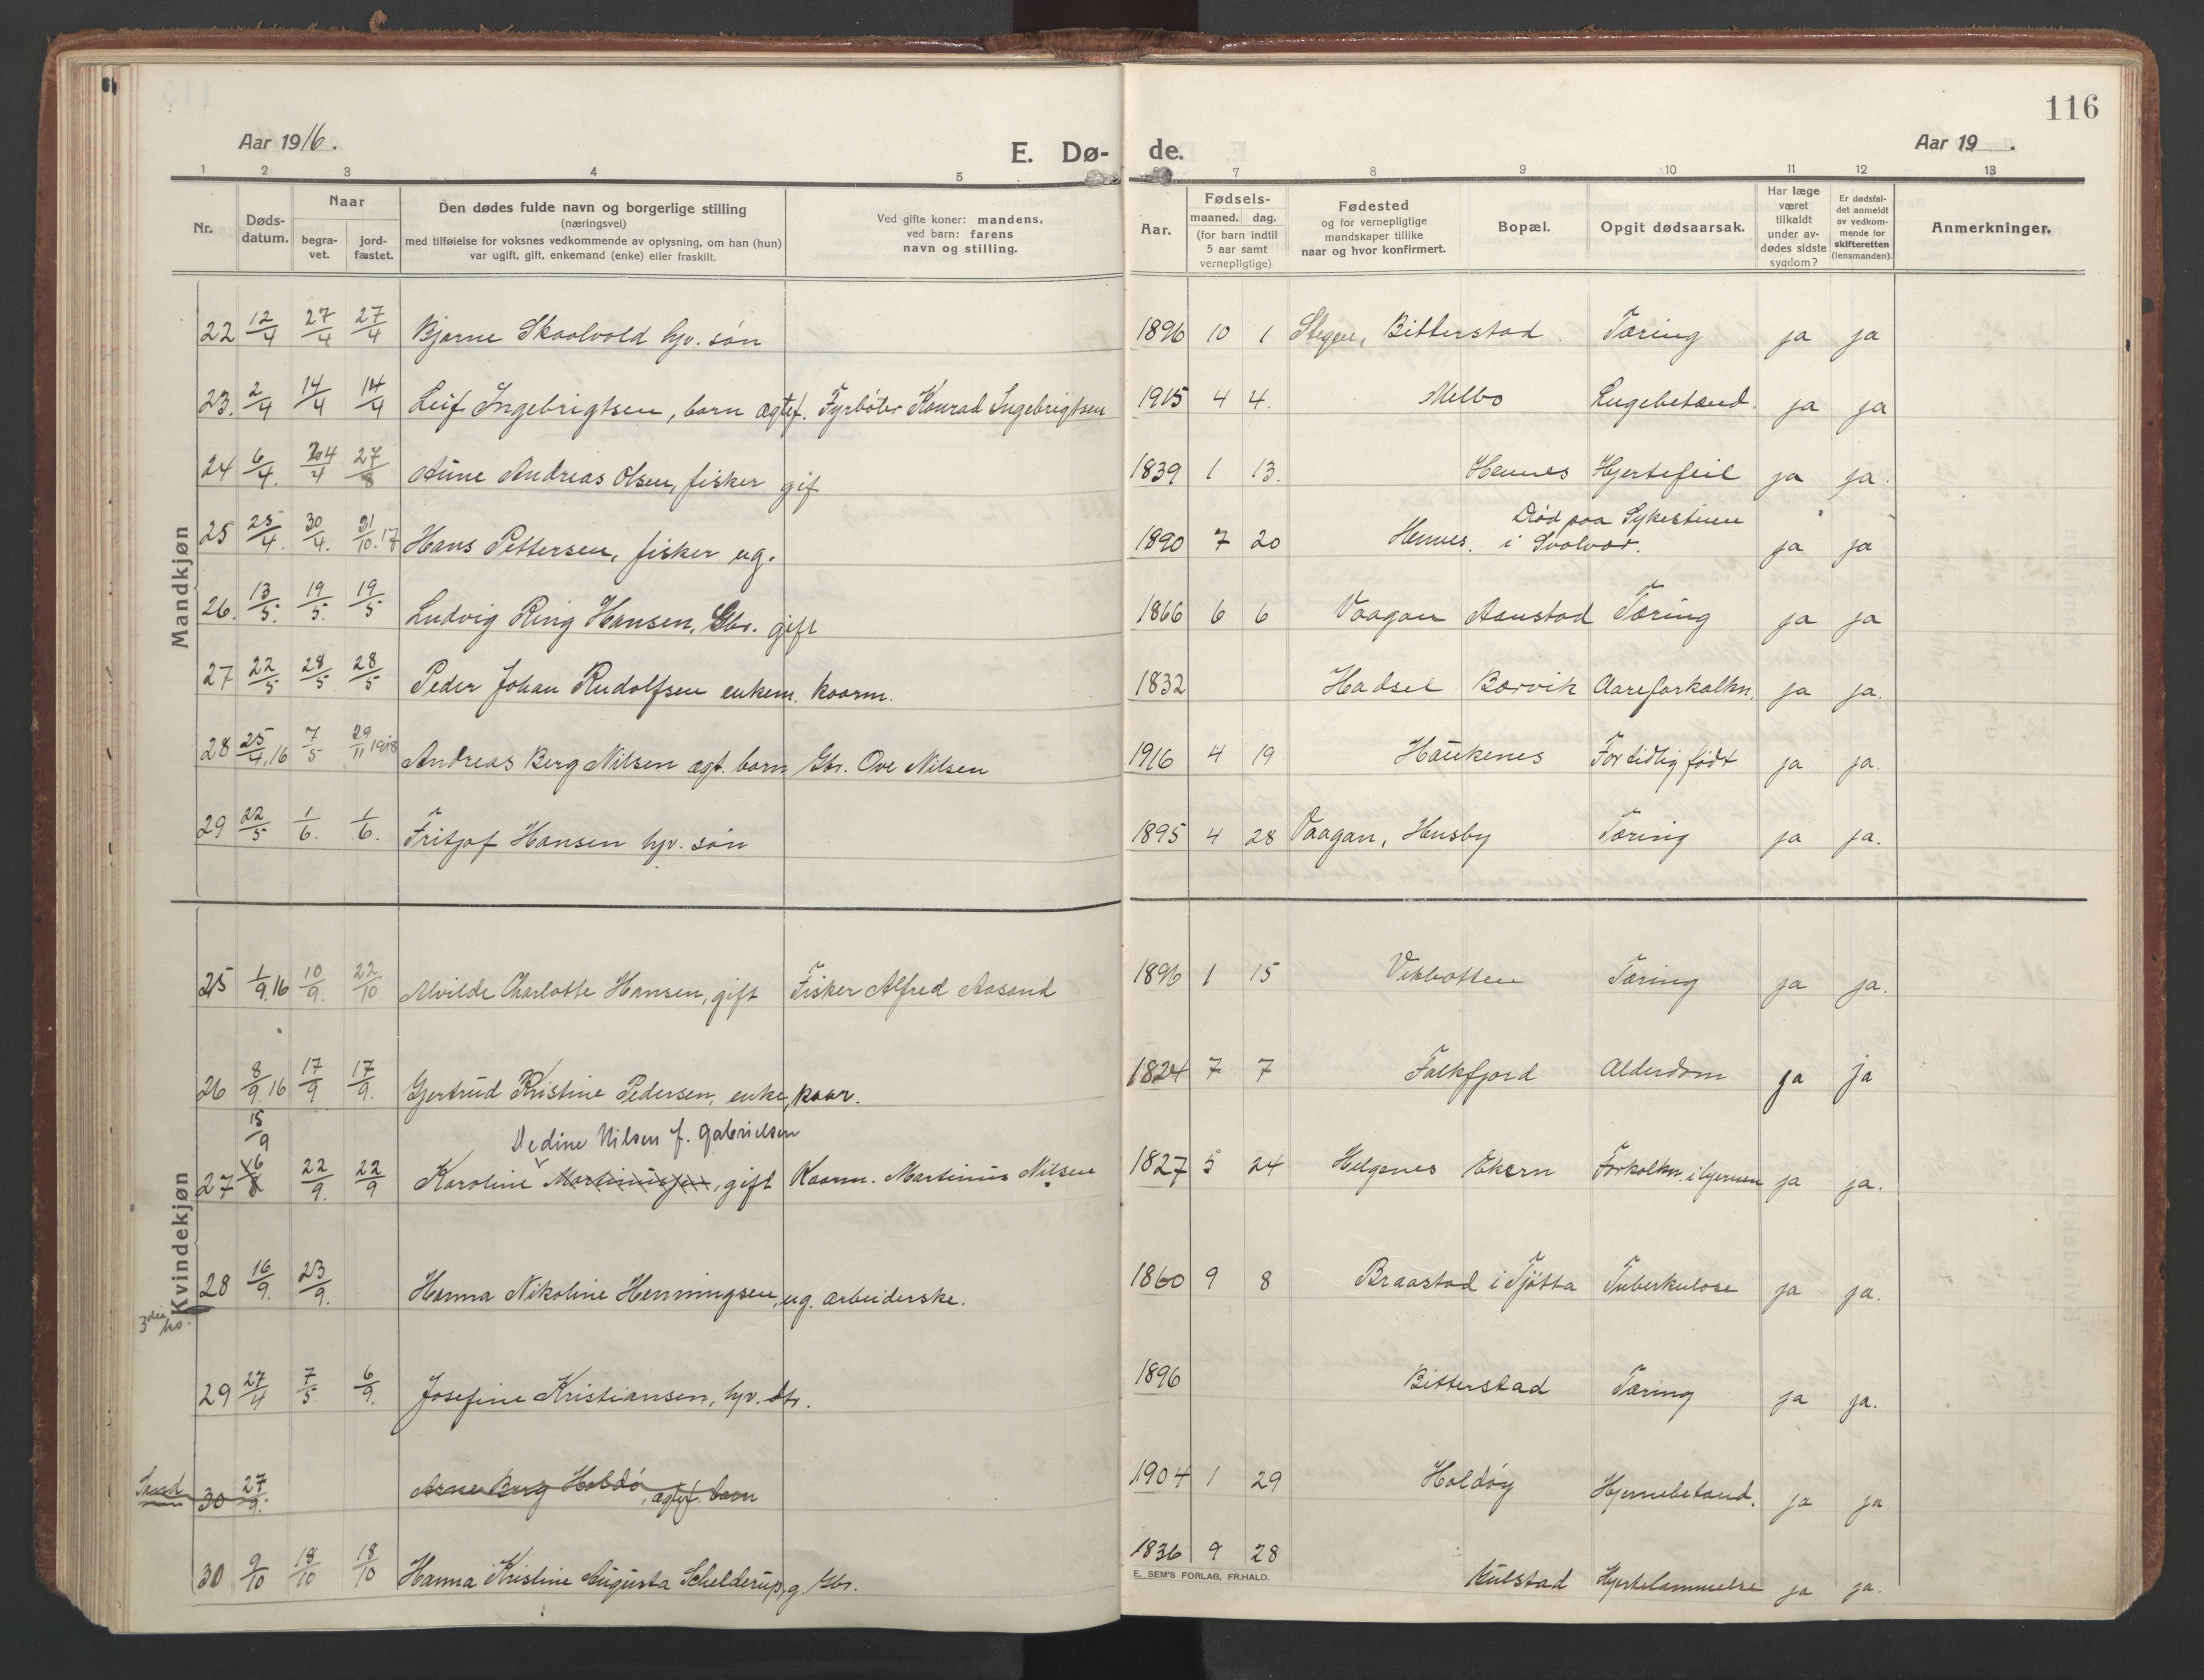 116
Aar 1916.
E. Dø- de.
Aar 19 .
1 2 3 4 5 7 8 9 10 11 12 13
Nr.
Døds-
datum.
Naar
begra-
vet.
jord-
fæstet.
Den dødes fulde navn og borgerlige stilling
(næringsvei)
med tilføielse for voksnes vedkommende av oplysning, om han (hun)
var ugift, gift, enkemand (enke) eller fraskilt.
Ved gifte koner: mandens,
ved barn: farens
navn og stilling.
Aar.
Fødsels-
maaned. dag.
(for barn indtil
5 aar samt
vernepligtige)
Fødested
og for vernepligtige
mandskaper tillike
naar og hvor konfirmert.
Bopæl.
Opgit dødsaarsak.
Har læge
været
tilkaldt
under av-
dødes sidste
sygdom?
Er dødsfal-
det anmeldt
av vedkom-
mende for
skifteretten
(lensmanden).
Anmerkninger.
Mandkjøn
22 12/4 27/4 27/4 Bjarne Skoolvold hjv. søn 1896 10 1 Stegen, Bitterstad Tæring ja ja
23. 2/4 14/4 14/4 Leif Ingebrigtsen, barn ægtef. Fyrbøter Konrad Ingebrigtsen 1915 4 4. Melbo Lugebetænd. ja ja
24 6/4. 14/4 27/8 Aüne Andreas Olsen, fisker gif 1839 1 13. Hennes Hjertefeil ja ja.
25 25/4. 30/4. 21/10.17 Hans Pettersen, fisker ug. 1890 7 20 Hennes. Død paa Sykestuen
i Svolvær. ja ja
26. 13/5. 19/5. 19/5 Ludvig Ring Hansen, Gbr. gift 1866 6 6 Vaagan Aanstad Tæring ja ja
27 22/5 28/5 28/5 Peder Johan Rudolfsen enkem. kaarm. 1832 Hadsel Borvik Aareforkalkn. ja ja.
28 25/4.16 7/5 29/11 1918 Andreas Berg Nilsen ægt. barn Gbr. Ove Nilsen 1916 4 19 Haükenes For tidlig født ja ja.
29 22/5 1/6. 1/6. Fritjof Hansen hjv. søn 1895 4 28 Vaagan, Husby Tæring ja ja.
Kvindekjøn
25 1/9.16 10/9. 22/10 Alvilde Charlotte Hansen, gift Fisker Alfred Aasand 1896 1 15 Vikbotten Tæring ja ja.
26 8/9.16 17/9 17/9. Gjertrud Kristine Pedersen, enke, kaar. 1824 7 7 Falkfjord Alderdom ja ja
15/9
Nedine Nilsen f. Gabrielsen
27 16/8 22/9. 22/9 Karoline Martinusjen, gift Kaarm. Martinus Nilsen 1827 5 24 Helgenes Ekern Forkalkn. i hjernen ja ja.
28 16/9. 23/9. Hanna Nikoline Henningsen, ug. arbeiderske. 1860 9 8 Braastad i Tjøtta Tuberkulose ja ja.
29 27/4 7/5. 6/9. Josefine Kristiansen, hjv. dtr. 1896 Bitterstad Tæring ja ja.
30 27/9. Arne Berg Holdø, ægtef. barn 1904 1 29 Holdøy Hjernebetænd. ja ja
30 9/10 18/10 18/10 Hanna Kristine Augusta Schelderup, g. Gbr. 1836 9 28 Kulstad Hjertelammelse ja ja.
E. SEM'S FORLAG, FR.HALD.